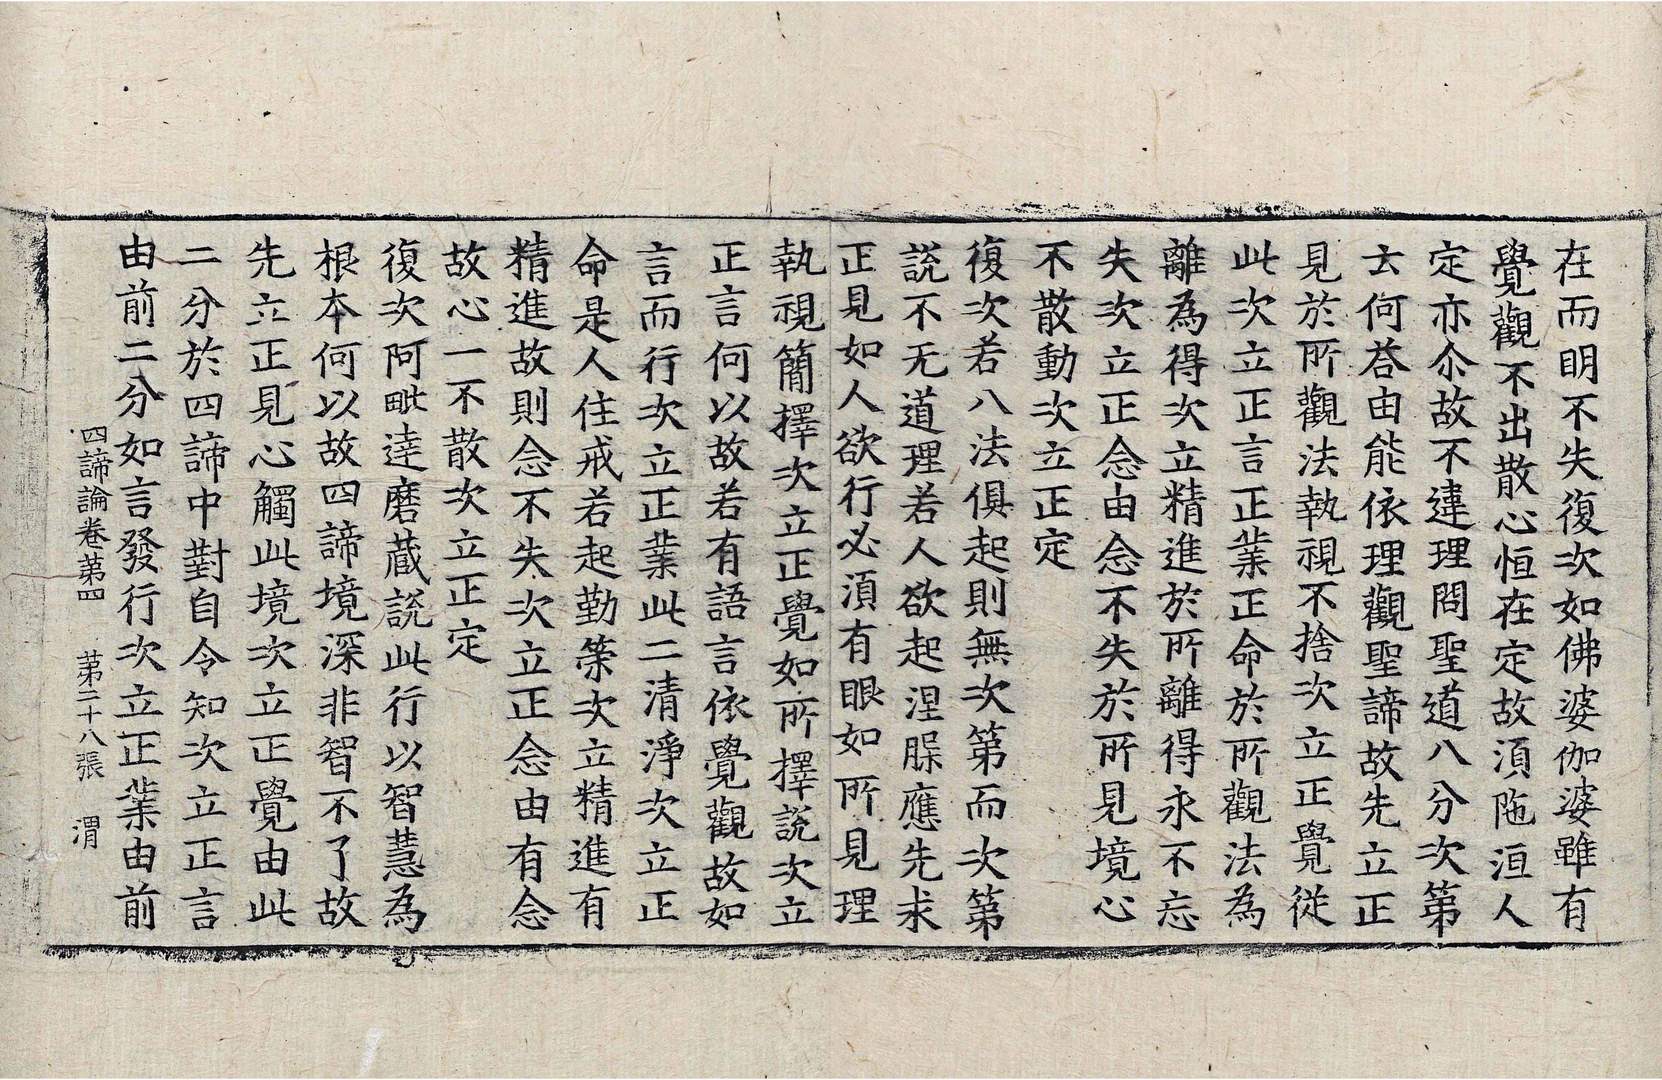 在而明不失復次如佛婆伽婆雖有
覺觀不出散心恒在定故湏陁洹人
定亦尒故不違理問聖道八分次第
云何荅由能依理觀聖諦故先立正
見於所觀法執視不捨次立正覺從
此次立正言正業正命於所觀法為
離為得次立精進於所離得永不忘
失次立正念由念不失於所見境心
不散動次立正定
復次若八法俱起則無次第而次第
說不无道理若人欲起涅䏶應先求
正見如人欲行必湏有眼如所見理
執視簡擇次立正覺如所擇說次立
正言何以故若有語言依覺觀故如
言而行次立正業此二清淨次立正
命是人住戒若起勤䇿次立精進有
精進故則念不失次立正念由有念
故心一不散次立正定
復次阿毗達磨蔵說此行以智慧為
根本何以故四諦境深非智不了故
先立正見心觸此境次立正覺由此
二分於四諦中對自令知次立正言
由前二分如言發行次立正業由前
四諦論卷第四 第二十八張 渭